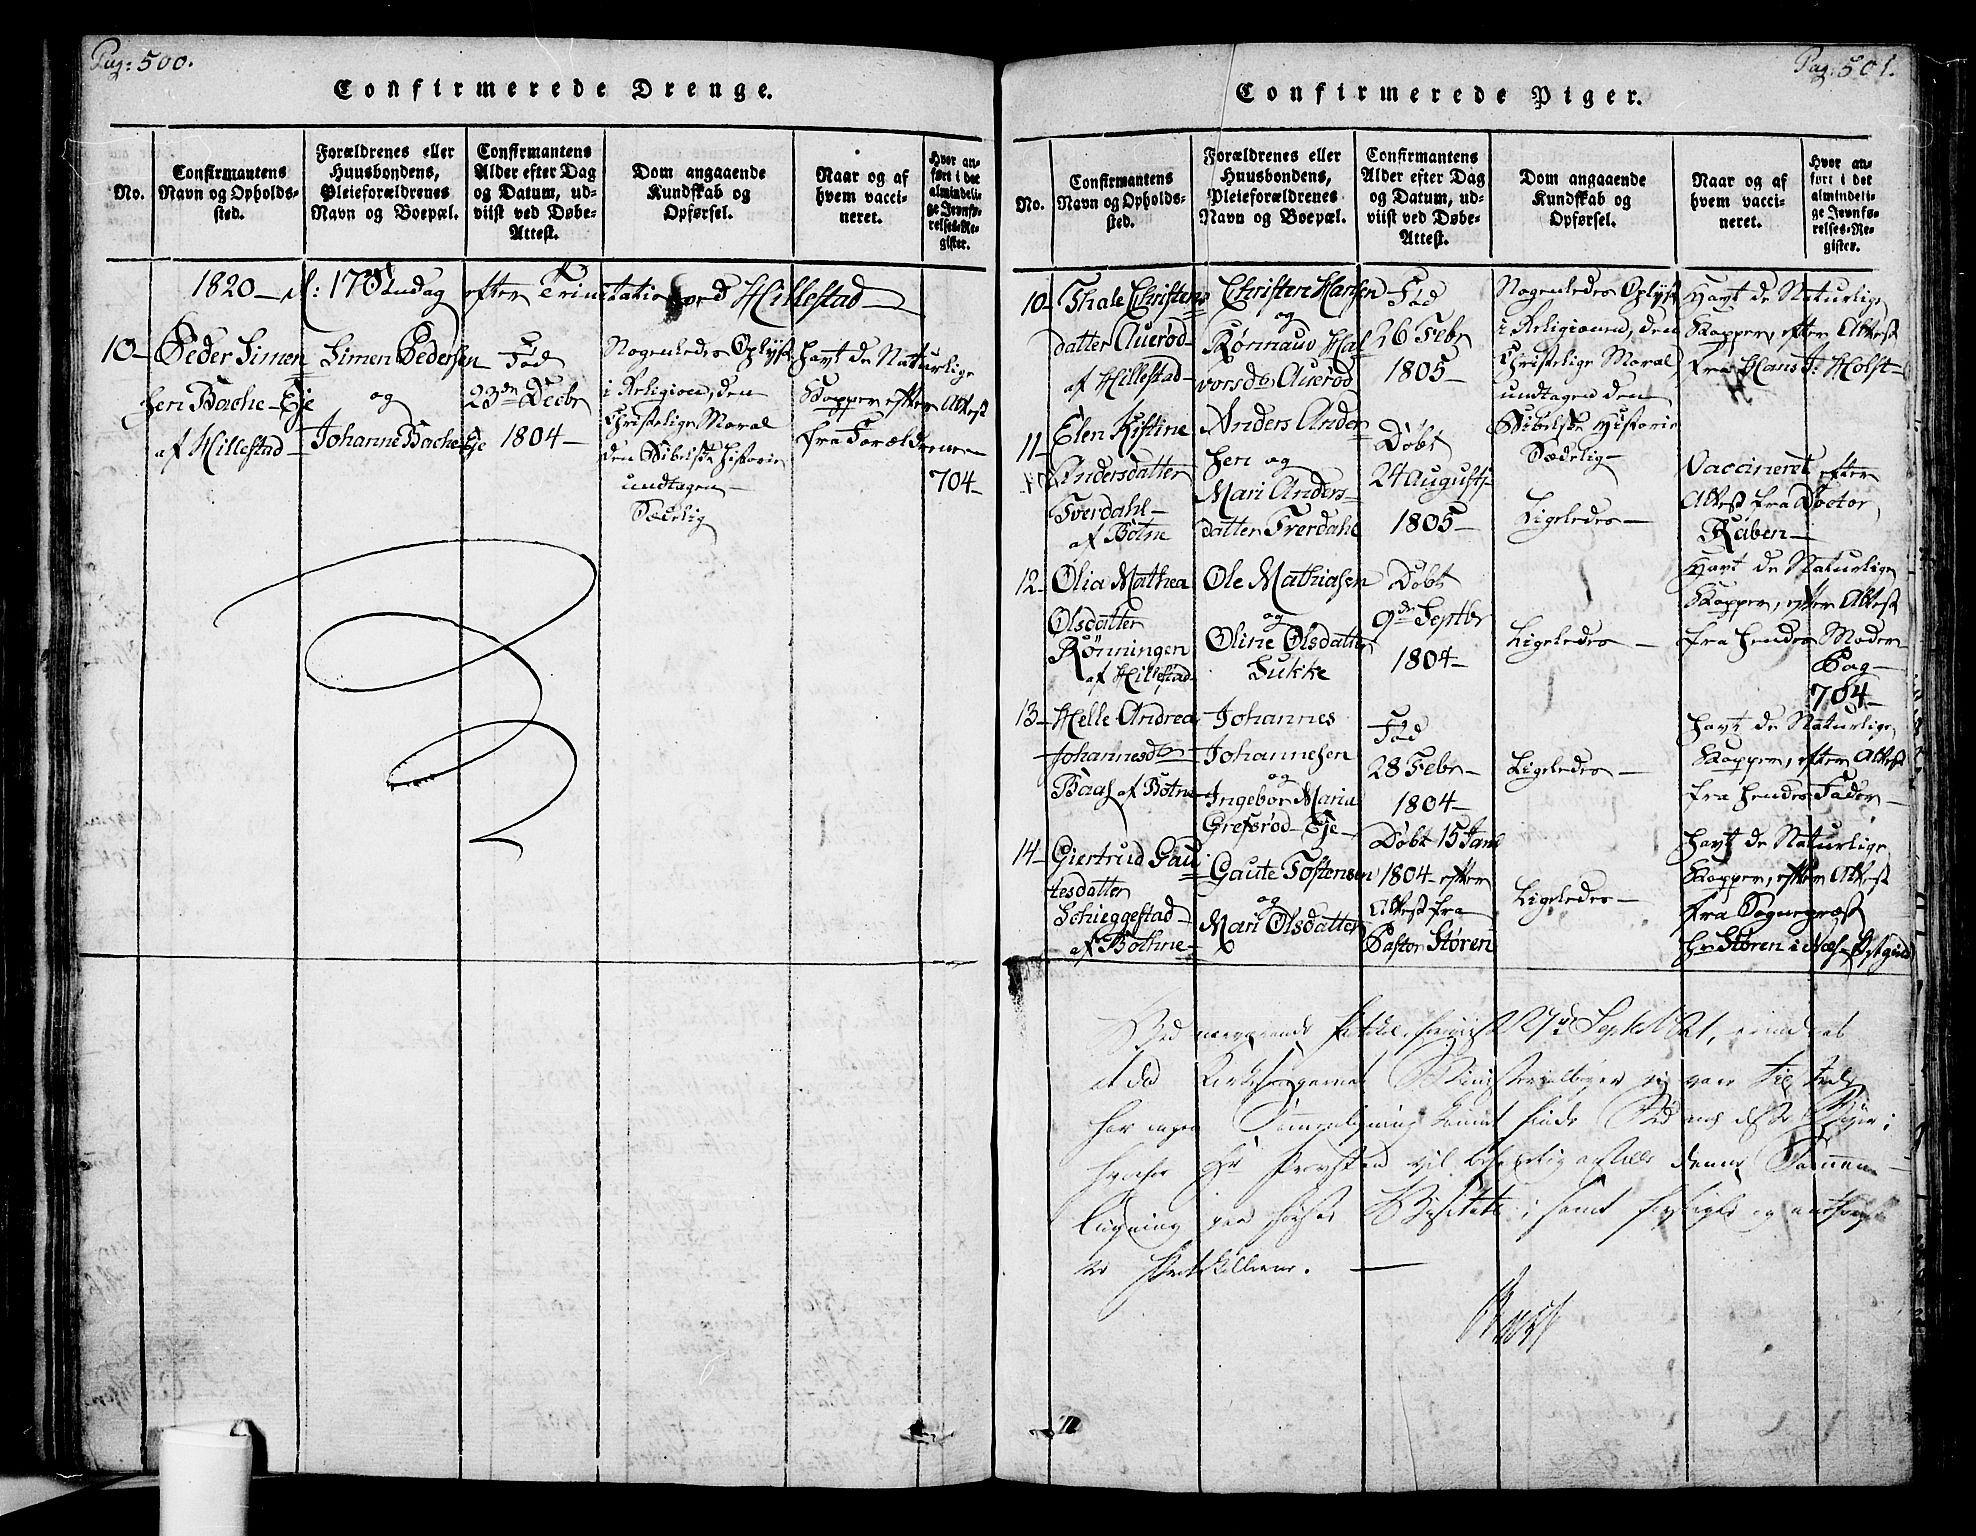 Pag: 500.
Confirmerede Drenge.
No.
Confirmantens
Navn og Opholds-
sted.
Forældrenes eller
Huusbondens,
Pleieforældrenes
Navn og Boepæl.
Confirmantens
Alder efter Dag
og Datum, ud-
viist ved Døbe-
Attest.
Dom angaaende
Kundskab og
Opførsel.
Naar og af
hvem vacci-
neret.
Hvor an-
ført i det
almindeli-
ge Jevnfø-
relses-Re-
gister.
1820 - d: 17de Søndag efter Trinitatis ved Hillestad
10-
Peder Simen
sen Bache-Eje
af Hillestad
Simen Pedersen
og
Johanne Bache Eje
Fød
23de Decbr
1804-
Nogenledes Oplyst
i Religion, den
Christelige Moral
den Bibelske Historie
undtagen-
Sædelig
Havt de Naturlige
Kopper, efter Attest
fra Forældrene-
704-
Pag: 501.
Confirmerede Piger.
No.
Confirmantens
Navn og Opholds-
sted.
Forældrenes eller
Huusbondens,
Pleieforældrenes
Navn og Boepæl.
Confirmantens
Alder efter Dag
og Datum, ud-
viist ved Døbe-
Attest.
Dom angaaende
Kundskab og
Opførsel.
Naar og af
hvem vacci-
neret.
Hvor an-
ført i det
almindeli-
ge Jevnfø-
relses-Re-
gister.
10-
Thale Christens
datter Auerød
af Hillestad-
Christen Hansen
og
Rønnaud Hal
vorsdr Auerød
Fød
26 Febr
1805-
Nogenledes Oplyst
i Religionen, den
Christelige Moral
undtagen den
Bibelske Historie
Sædelig-
Havt de Naturlige
Kopper, efter Attest
fra Hans J: Holst-
11-
Elen Kistine
Andersdatter
Tverdahl-
af Botne
Anders Ander
sen og
Mari Anders-
datter Tverdahl
Døbt
24 Augusti
1805-
Ligeledes-
Vaccineret efter
Attest fra Doctor
Raben-
12-
Olia Mathea
Olsdatter
Rönningen
af Hillestad-
Ole Mathiasen
og
Oline Olsdatter
Lukke
Døbt
9de Septbr
1804-
Ligeledes-
Havt de Naturlige
Kopper, efter Attest
fra hendes Moder
Pag-
704-
13-
Helle Andrea
Johannesdr
Baas af Botne
Johannes
Johannesen
og
Ingebor Maria
Grefsrød-Eje-
Fød
28 Febr-
1804-
Ligeledes-
Havt de Naturlige
Kopper, efter Attest
fra hendes Fader-
14-
Giertrud Gau
tesdatter
Schieggestad-
af Bothne-
Gaute Tostensen
og
Mari Olsdatter
Døbt 15 Jan
1804-efter
Attest fra
Pastor Støren
Ligeledes-
Havt de Naturlige
Kopper, efter Attest
fra Sognepræst
Hr Støren i Næs Præstgield
Ved nærværende
Ministerialbøger
har ingen Sammenligning kunnet finde Sted
denne Sammen-
ligning paa